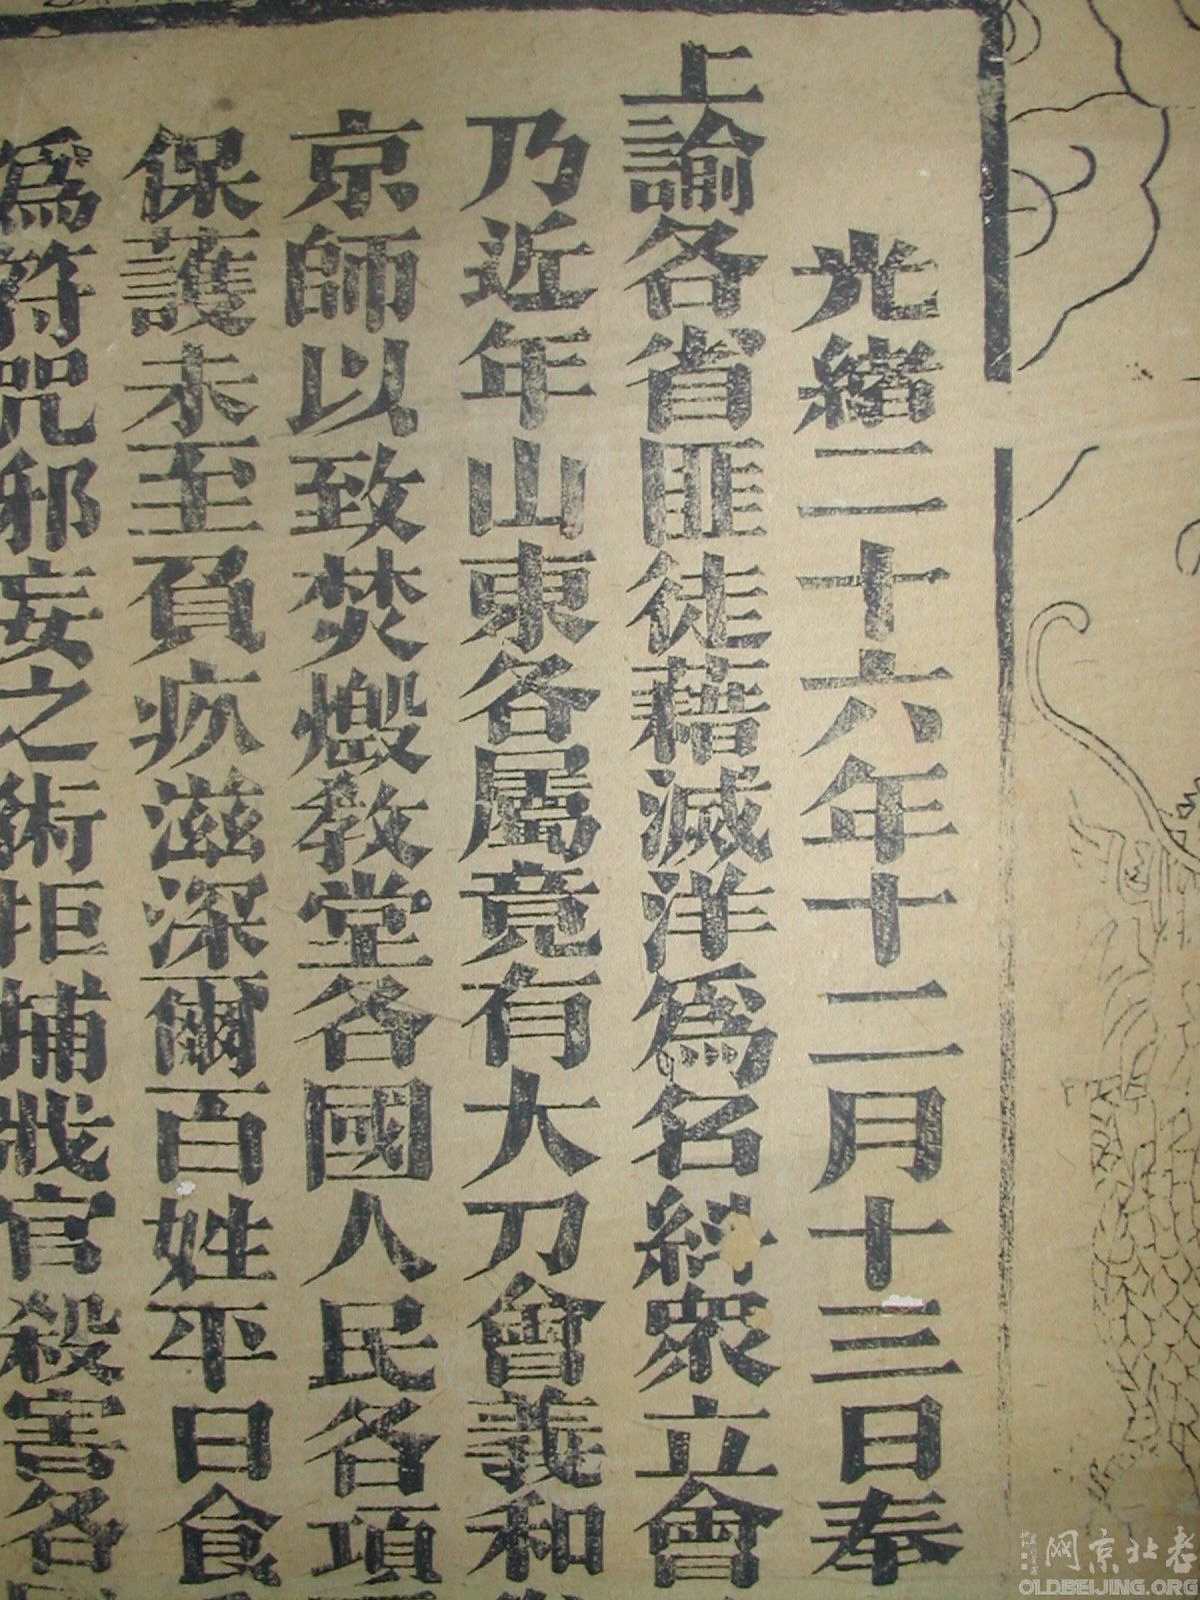 光緒二十六年十二月十三日奉
上諭各省匪徒藉滅洋爲名糾衆立會
乃近年山東各屬竟有大刀會義和
京師以致焚燬教堂各國人民各項
保護未至負疚滋深爾百姓平日食
爲符咒邪妄之術拒捕戕官殺害各
老北京网
OLDBEIJING.ORG